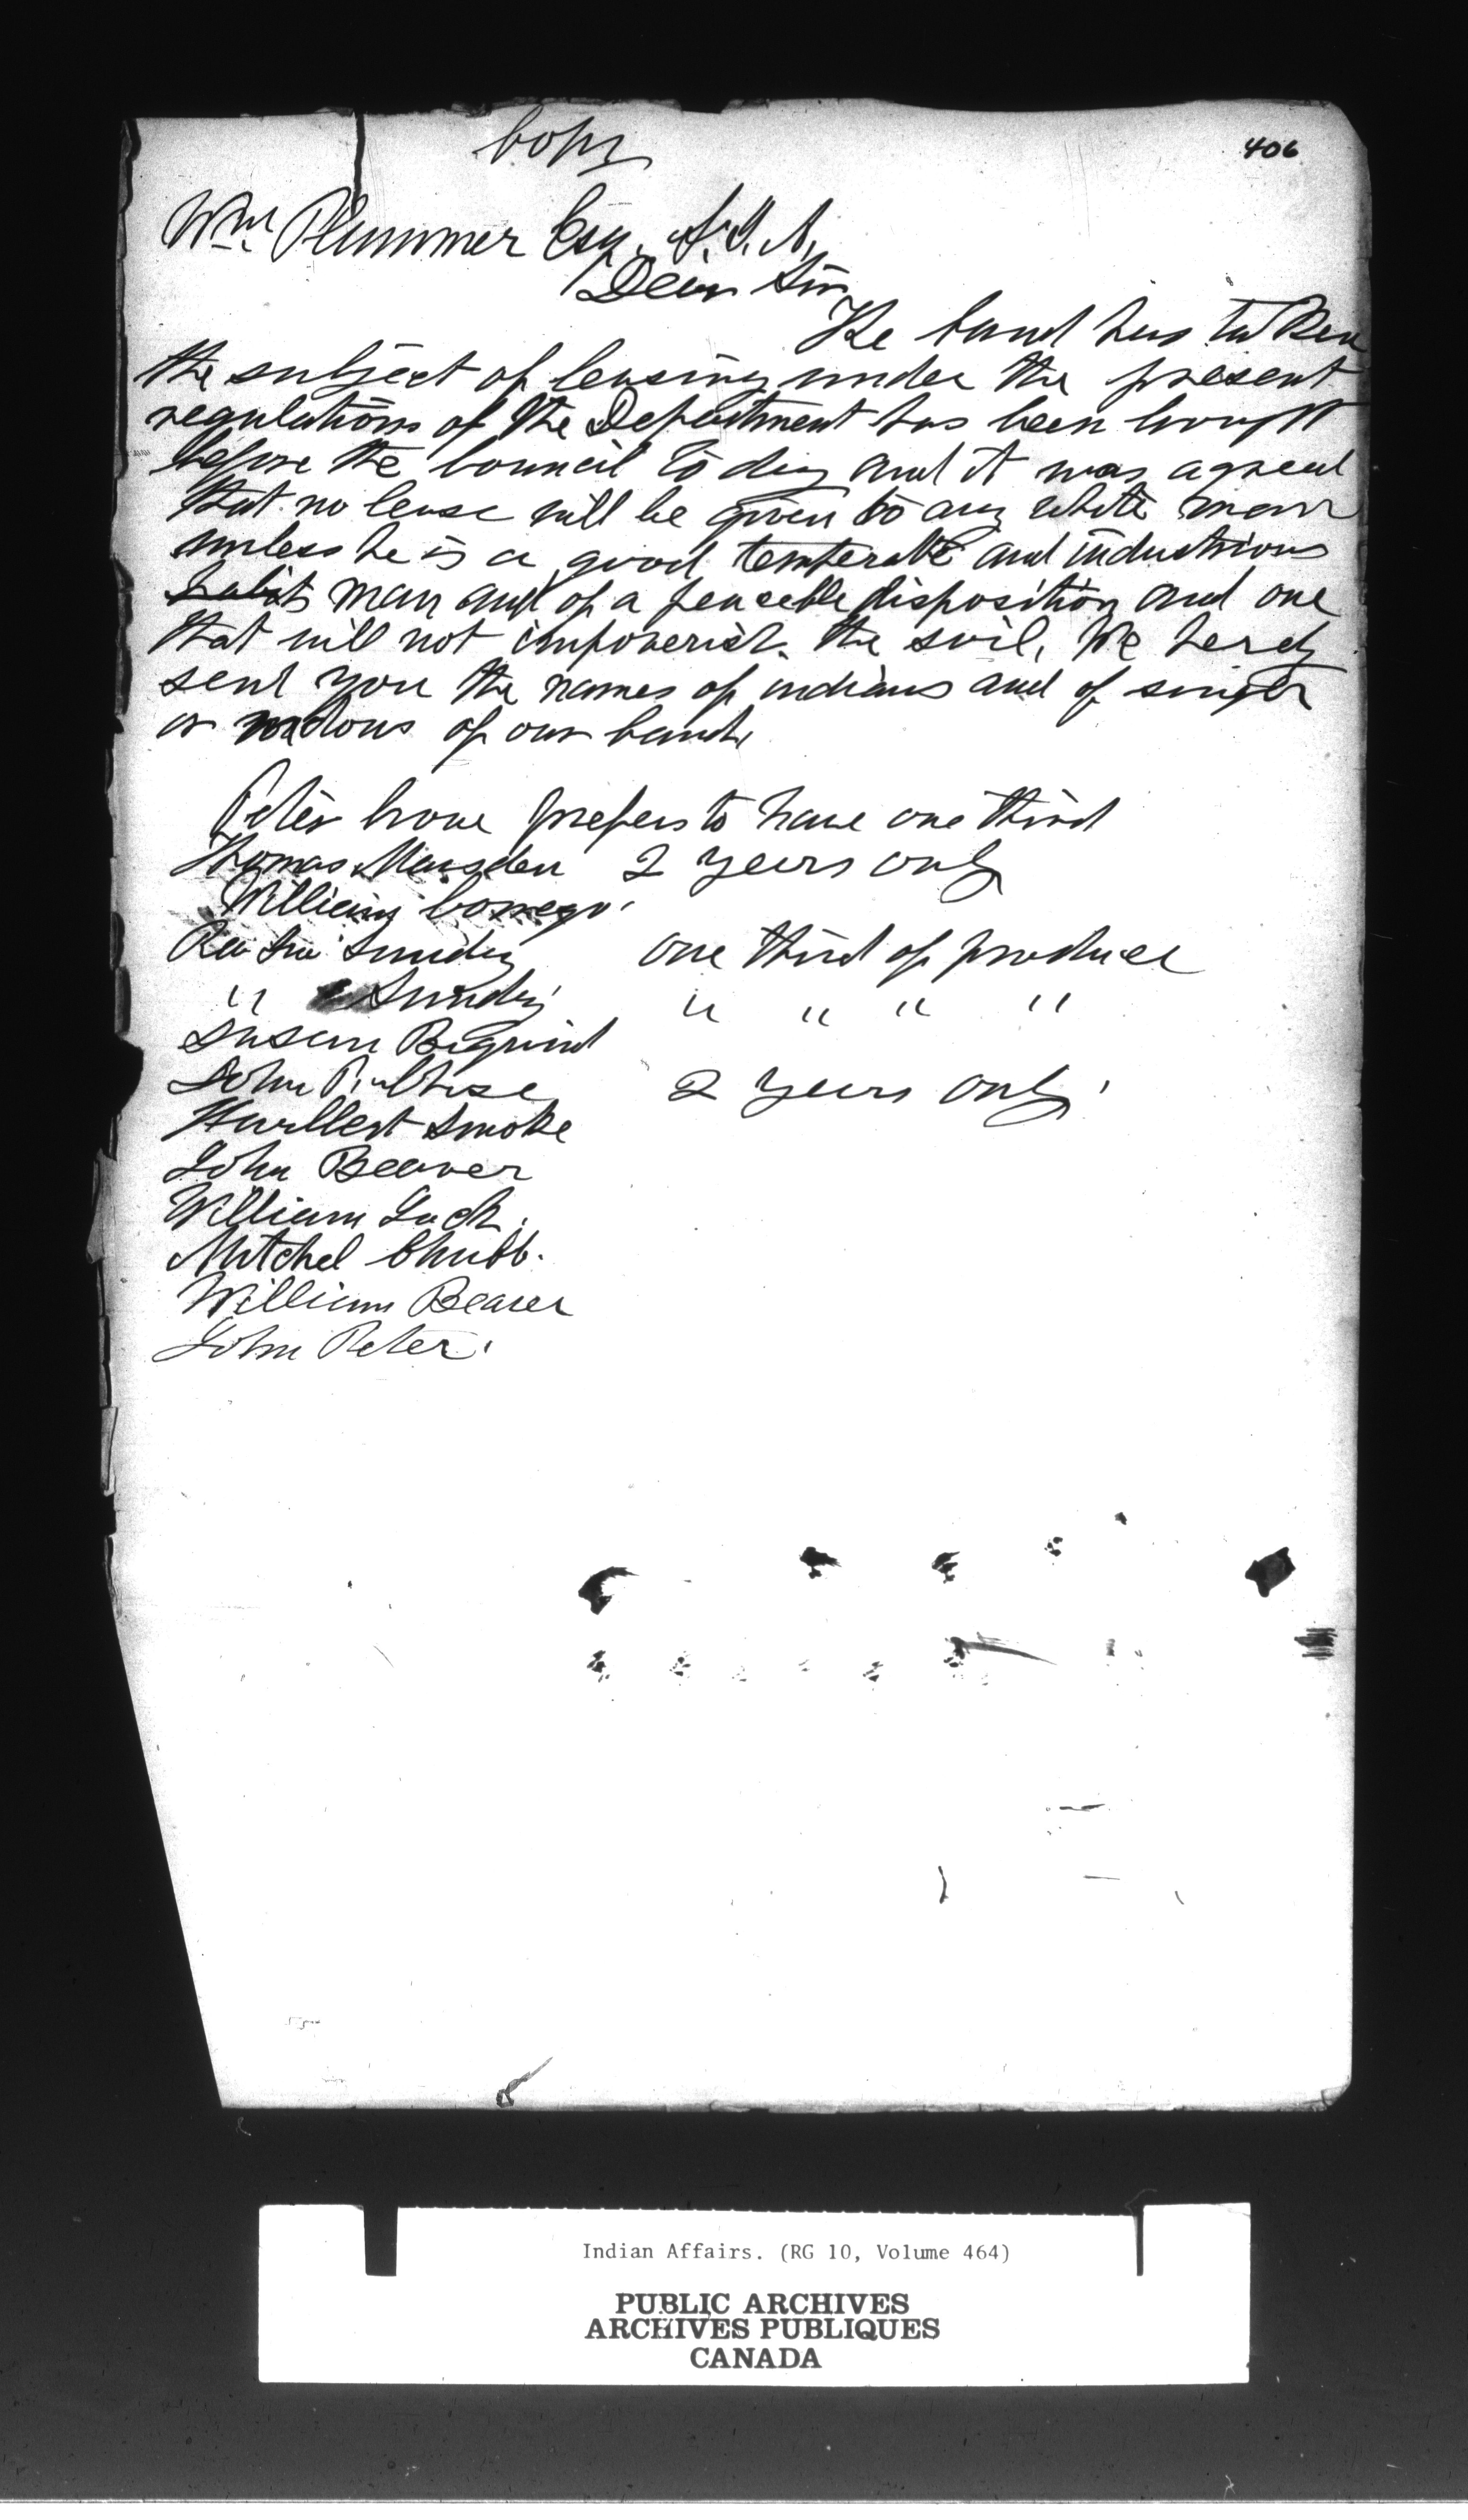 Copy
406
Wm Plummer Esq. S.I.A.
Dear Sir
The band has taken
the subject of leasing under the present
regulations of the Department has been brought
before the Council to day and it was agreed
that no lease will be given to any white man
unless he is a good temperate and industrious
habits man and of a peaceble disposition and one
that will not impoverish the soil, We herely
send you the names of indians and of
or widows of our band,
Peter Crow prefers to have one third
Thomas Marsden 2 years only
William Comego
Sunday one third of produce
" Sunday " " " "
Susan Bigwind
John 2 years only
Smoke
John Beaver
William Jack.
Mitchel Chubb.
William Beaver
John Peter.
Indian Affairs. (RG 10, Volume 464)
PUBLIC ARCHIVES
ARCHIVES PUBLIQUES
CANADA